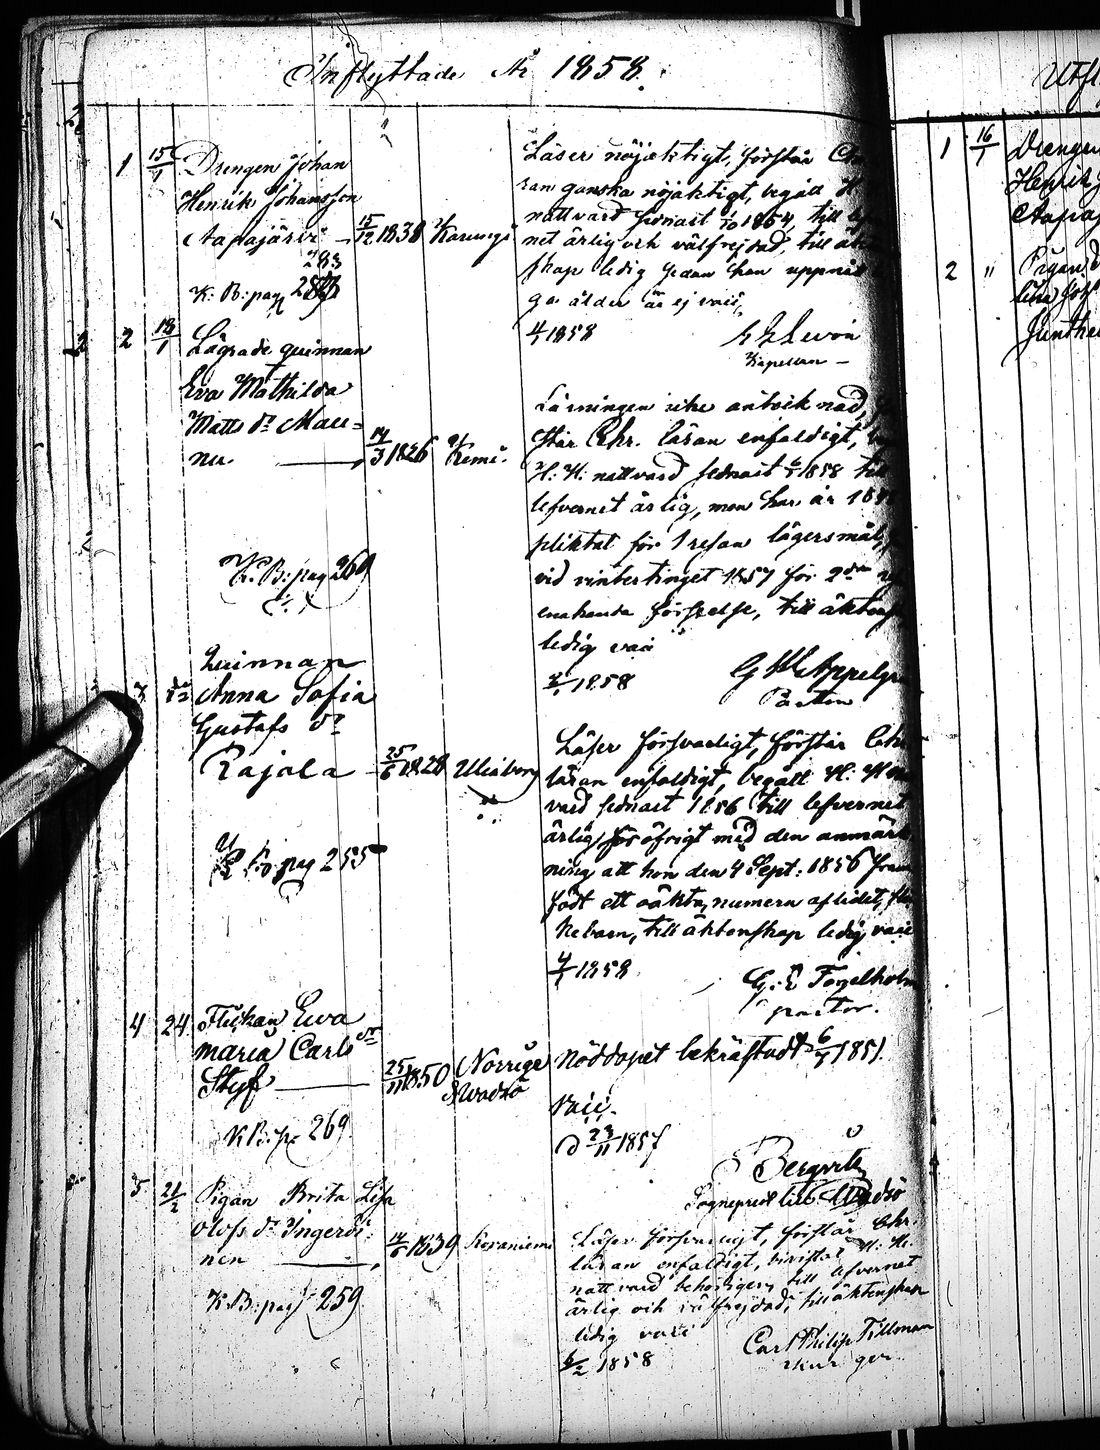 Inflyttade År 1858.
1 15/1 Drengen Johan
Henrik Johansson
Aapajärvi — 15/12 1838 Karungi
283
K. B: pag
Läser nöjaktigt, förstår Chr
ran ganska nöjaktigt, begått H.
nattvard sednast 1/10 1854, till lef
net ärlig och välfrejdad, till äk
skap ledig sedan han uppnått
ga ålder är ej vacc.
4/1 1858
Kapellan —
2 13/1 Lägrade quinnan
Eva Mathilda
Matts dr
nu — 14/3 1826 Kemi.
K. B: pag 269
Läsningen icke antecknad,
står Chr. läran enfaldigt,
H: H: nattvard sednast 6/1 1858 till
lefvernet ärlig, men har år 18
pliktat för 1 resan lägersmål,
vid vintertinget 1857 för 2dra
enahanda förseelse, till äktensk
ledig vacc
1858
Pastor
3 Quinnan
Anna Sofia
Gustafs dr
Rajala — 25/6 1828 Uleåborg
K. B: pag 255
Läser försvarligt, förstår Chr
läran enfaldigt, begått H: H:
vard sednast 1856 till lefvernet
ärlig, för öfrigt med den anmärk
ning att hon den 4 Sept: 1856 fram
födt ett oäkta, numera aflidet, fli
kebarn, till äktenskap ledig, vacc
4/1 1858
G. E Fogelholm
pastor.
4 24 Flickan Eva
Maria Carls dr
Styf — 25/11 1850 Norrige
& Wadsö
K B: p. 269
Nöddopet bekräftadt 6/7 1851.
Vacc.
d 23/11 1857
Sogneprest till Wadsö
5 21/2 Pigan Brita Lisa
Olofs dr Ingeröi-
nen — 14/6 1839 Rovaniemi
K. B: pag 259
Läser försvarligt, förstår Chr.
läran enfaldigt, bivistat H: H:
nattvard behörigen, till lefvernet
ärlig och välfrejdad, till äktenskap
ledig vacc
6/2 1858
Carl Philip Tillman
1 16/1 Drengen
Henrik J
Aapaj
2 " Pigan